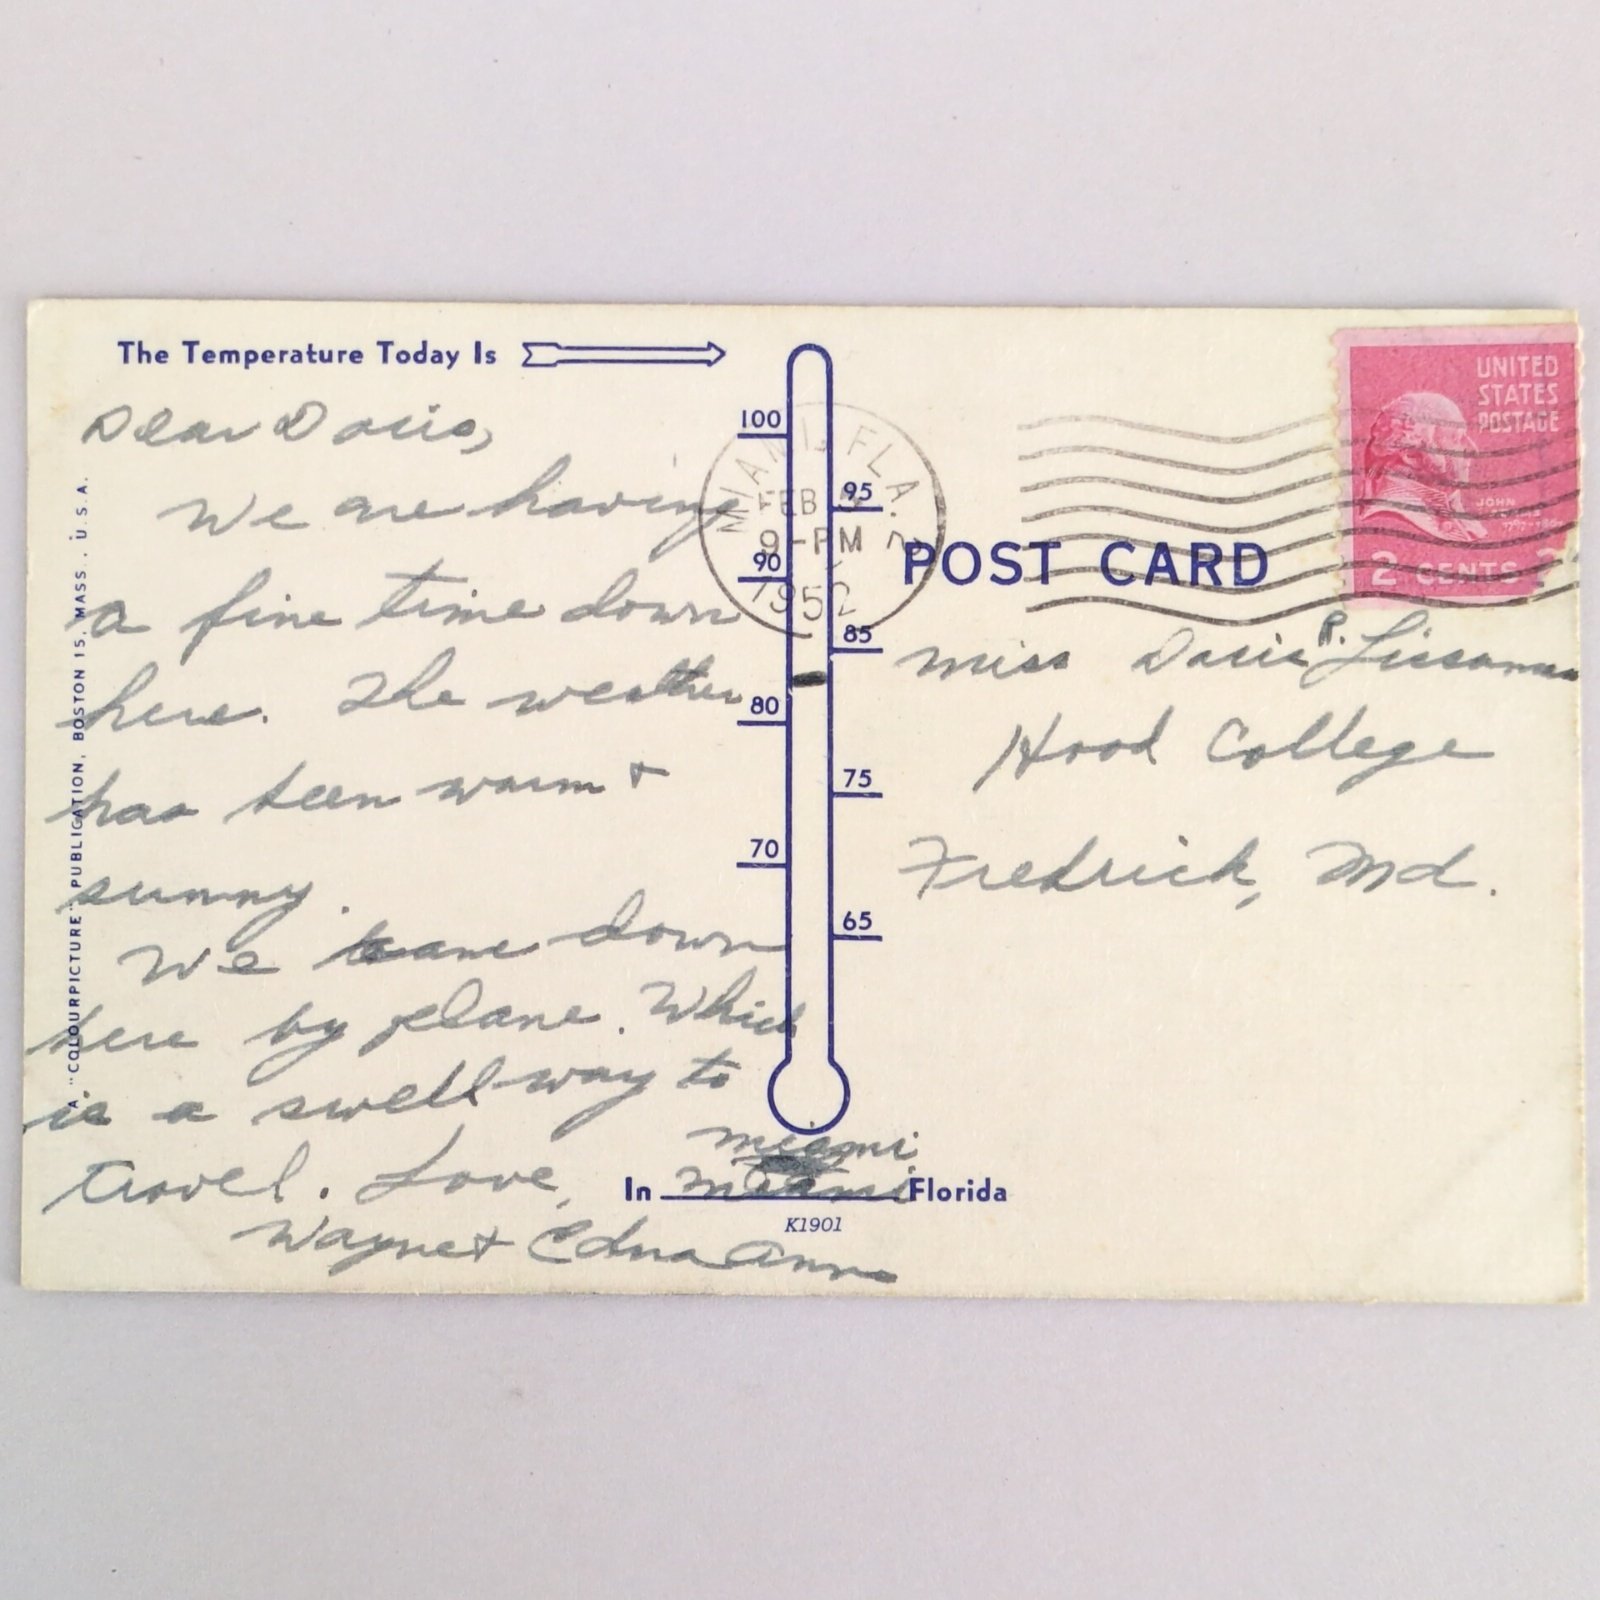 The Temperature Today Is
Dear Doris,
We are having
a fine time down
here. The weather
has been warm +
sunny.
We came down
here by plane. Which
is a swell way to
travel. Love,
Wayne + Edna Anne
A "COLOURPICTURE" PUBLICATION, BOSTON 15, MASS., U.S.A.
100
95
90
85
80
75
70
65
In Miami Florida
miami
K1901
MIAMI, FLA.
FEB
9-PM
1952
POST CARD
UNITED
STATES
POSTAGE
JOHN
2 CENTS 2
Miss Doris R.
Hood College
Fredrick, Md.